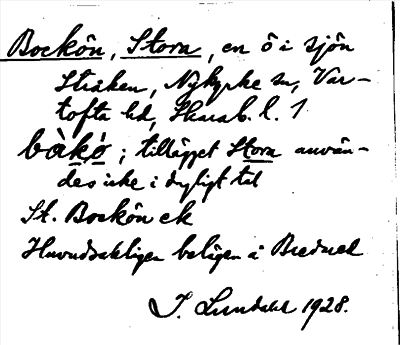 Bockön, Stora, en ö i sjön
Stråken, Nykyrke sn, Var-
tofta hd, Skarab. l. 1
bàkø̀; tillägget Stora använ-
des icke i dagligt tal
St. Bockön ek
Huvudsakligen belägen i Bredared
J. Lundahl 1928.